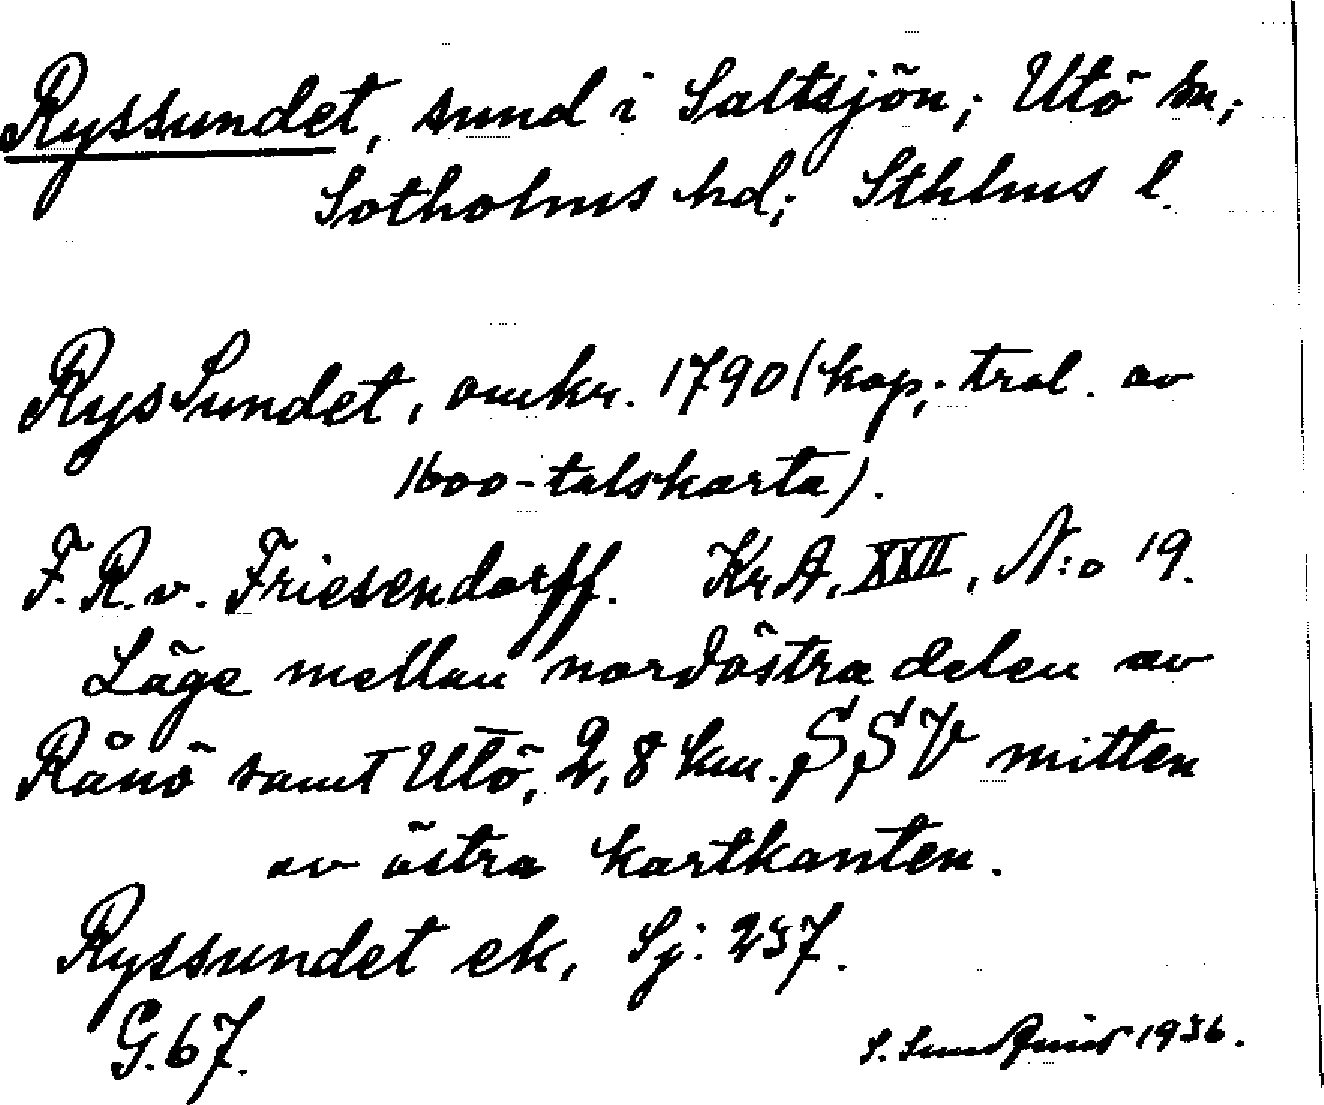 Ryssundet, sund i Saltsjön; Utö sn;
Sotholms hd; Sthlms l.
RysSundet, omkr. 1790 (kop; trol. av
1600-talskarta).
F. R. v. Friesendorff. Kr.A. XXII, N:o 19.
Läge mellan nordöstra delen av
Rånö samt Utö, 2,8 km. SSV mitten
av östra kartkanten.
Ryssundet ek, Sj: 237.
G. 67.
S. Sundquist 1936.